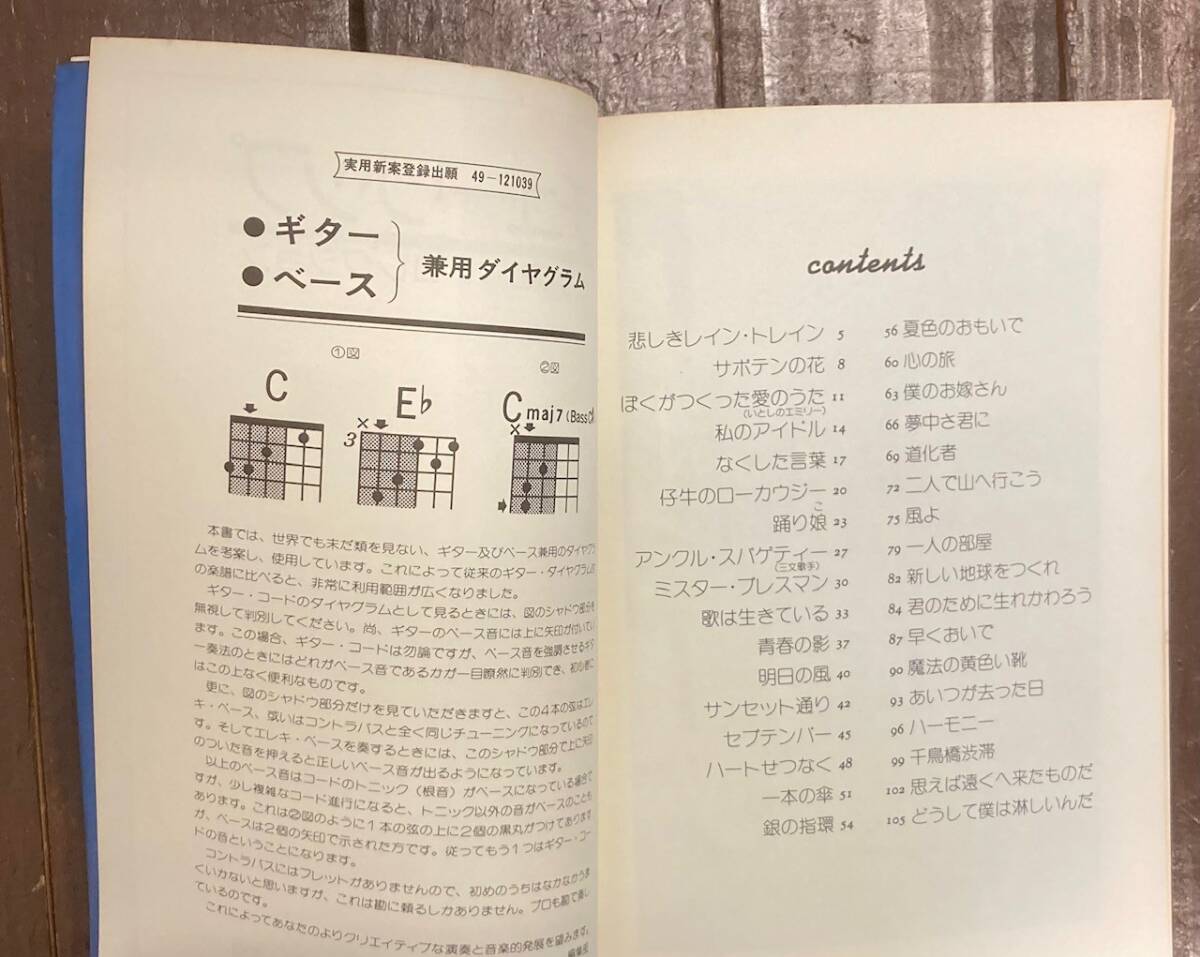 実用新案登録出願 49-121039
● ギター
● ベース
兼用ダイヤグラム
①図
②図
C
E♭
C maj7 (Bass
×
3
×
本書では、世界でも末だ類を見ない、ギター及びベース兼用のダイヤグラ
ムを考案し、使用しています。これによって従来のギター・ダイヤグラム
の楽譜に比べると、非常に利用範囲が広くなりました。
ギター・コードのダイヤグラムとして見るときには、図のシャドウ部分を
無視して判別してください。尚、ギターのベース音には上に矢印が付いてい
ます。この場合、ギター・コードは勿論ですが、ベース音を強調させるギタ
ー奏法のときにはどれがベース音であるカガ一目瞭然に判別でき、初心者に
はこの上なく便利なものです。
更に、図のシャドウ部分だけを見ていただきますと、この4本の弦はエレ
キ・ベース、或いはコントラバスと全く同じチューニングになっているので
す。そしてエレキ・ベースを奏するときには、このシャドウ部分で上に矢印
のついた音を押えると正しいベース音が出るようになっています。
以上のベース音はコードのトニック（根音）がベースになっている場合で
すが、少し複雑なコード進行になると、トニック以外の音がベースのことも
あります。これは②図のように1本の弦の上に2個の黒丸がつけてあります
が、ベースは2個の矢印で示された方です。従ってもう1つはギター・コー
ドの音ということになります。
コントラバスにはフレットがありませんので、初めのうちはなかなかうま
くいかないと思いますが、これは勘に頼るしかありません。プロも勘で奏し
ているのです。
これによってあなたのよりクリエイティブな演奏と音楽的発展を望みます。
編集部
contents
悲しきレイン・トレイン 5
サボテンの花 8
ぼくがつくった愛のうた 11
(いとしのエミリー)
私のアイドル 14
なくした言葉 17
仔牛のローカウジー 20
こ
踊り娘 23
アンクル・スパゲティー 27
(三文歌手)
ミスター・プレスマン 30
歌は生きている 33
青春の影 37
明日の風 40
サンセット通り 42
セプテンバー 45
ハートせつなく 48
一本の傘 51
銀の指環 54
56 夏色のおもいで
60 心の旅
63 僕のお嫁さん
66 夢中さ君に
69 道化者
72 二人で山へ行こう
75 風よ
79 一人の部屋
82 新しい地球をつくれ
84 君のために生れかわろう
87 早くおいで
90 魔法の黄色い靴
93 あいつが去った日
96 ハーモニー
99 千鳥橋渋滞
102 思えば遠くへ来たものだ
105 どうして僕は淋しいんだ